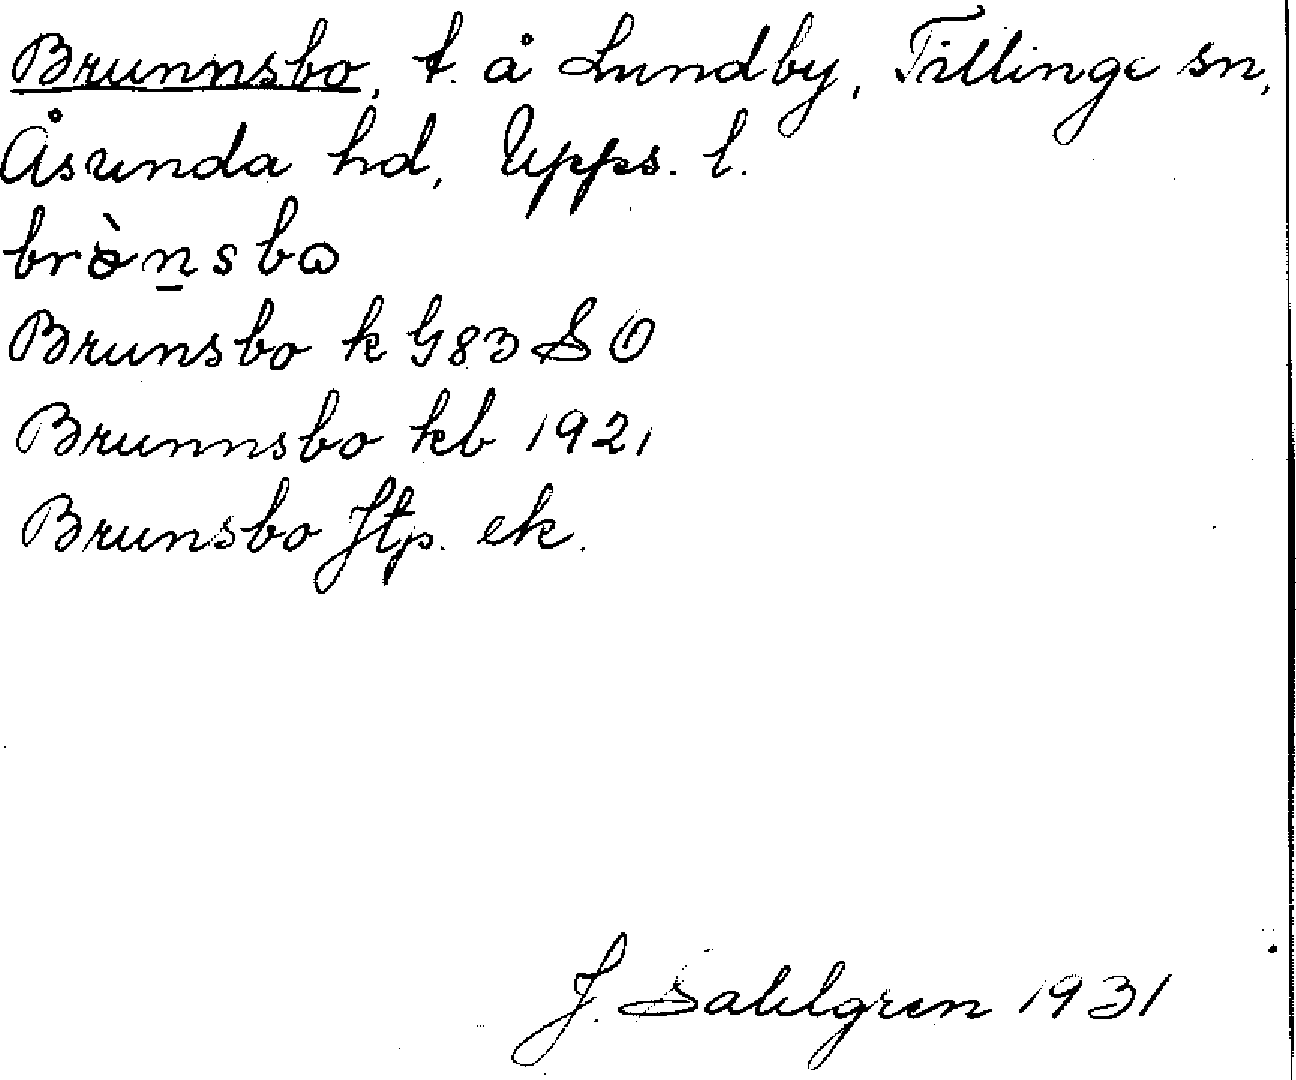 Brunnsbo, t. å Lundby, Tillinge sn,
Åsunda hd, Upps. l.
brə̀n̲sbɷ
Brunsbo k G83 S O
Brunnsbo kb 1921
Brunsbo Jtp. ek.
J. Sahlgren 1931